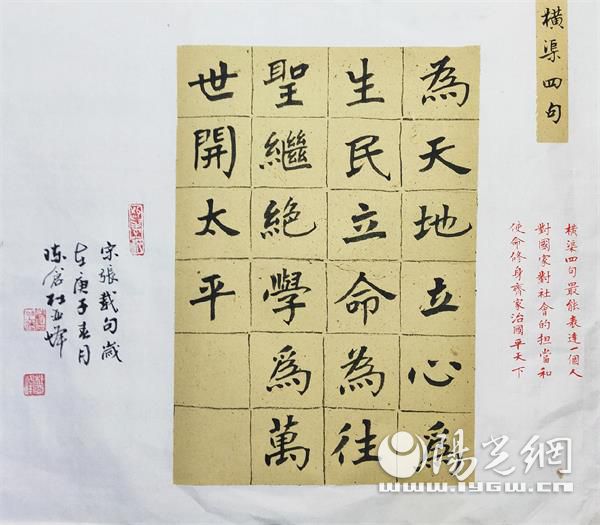 橫渠四句
橫渠四句最能表達一個人
對國家對社會的担當和
使命修身齊家治國平天下
為天地立心爲
生民立命為往
聖繼絕學爲萬
世開太平
宋張載句歲
在庚子春月
陈倉杜亚
陽光網
www.iygw.cn